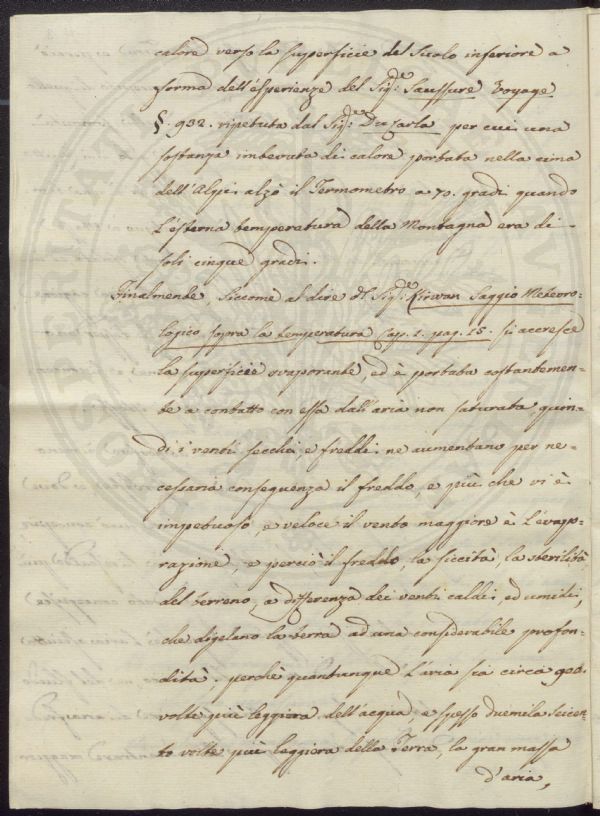 calore verso la superficie del suolo inferiore a
forma dell'esperienze del Sig:e Saussure Voyage
§. 932. ripetuta dal Sig:e Ducarla per cui una
sostanza imbevuta di calore portata nella cima
dell'Alpi alzò il Termometro a 70. gradi quando
l'esterna temperatura della Montagna era di
soli cinque gradi.
Finalmente, siccome al dire del Sig:e Kirwan Saggio Meteoro-
logico sopra la temperatura Cap. 1. pag. 15. si accresce
la superficie svaporante, ed è portata costantemen-
te a contatto con essa dall'aria non saturata, quin-
di i venti secchi, e freddi ne aumentano per ne-
cessaria conseguenza il freddo, e più che vi è
impetuoso, e veloce il vento maggiore è l'évapo-
razione, e perciò il freddo, la siccità, la sterilità
del terreno, a differenza dei venti caldi, ed umidi,
che digelano la terra ad una considerabile profon-
dità; perchè quantunque l'aria sia circa 900.
volte più leggiera dell'acqua, e spesso duemila seicen-
to volte più leggiera della Terra, la gran massa
d'aria,